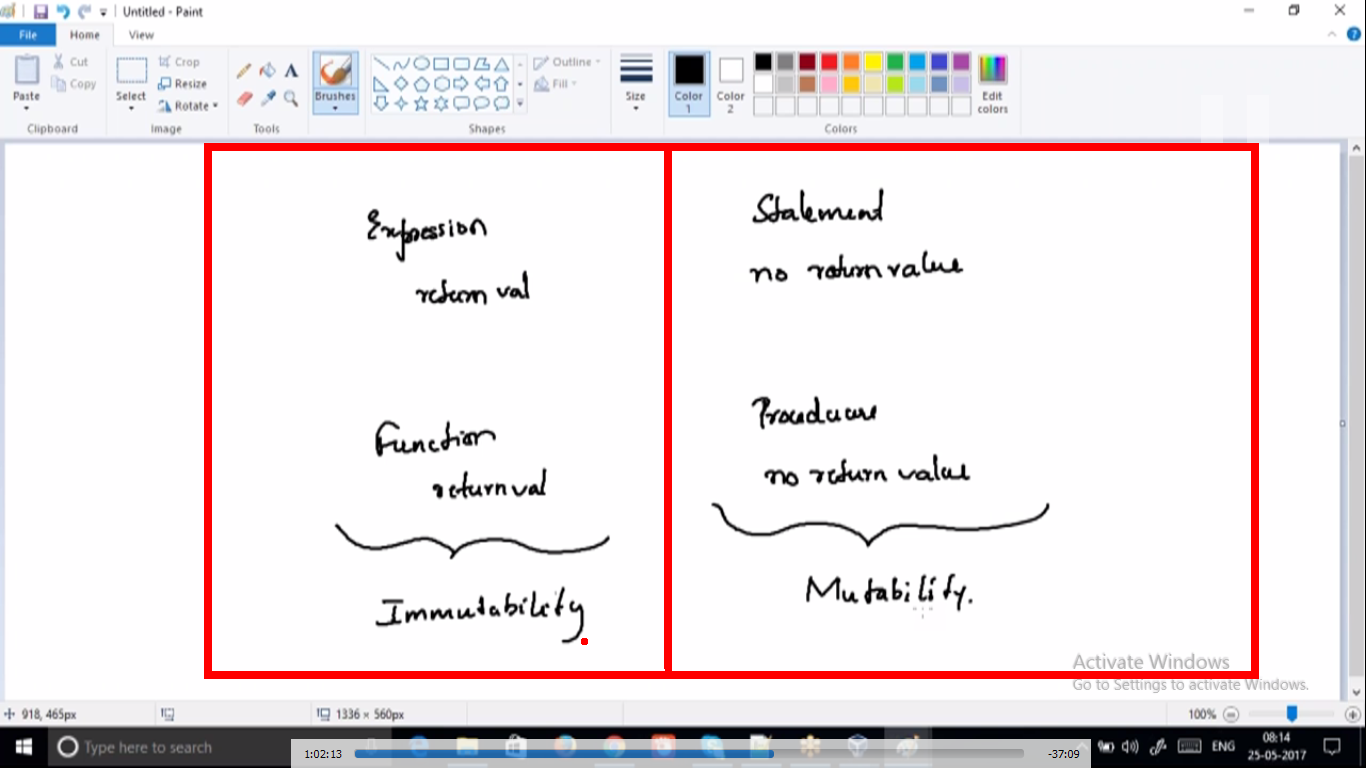 Untitled - Paint
File Home View
Paste
Cut
Copy
Clipboard
Select
Crop
Resize
Rotate
Image
Tools
Brushes
Shapes
Outline
Fill
Size
Color 1
Color 2
Edit colors
Colors
Expression
return val
Function
return val
Immutability
Statement
no return value
Procedure
no return value
Mutability.
Activate Windows
Go to Settings to activate Windows.
918, 465px
1336 × 560px
100%
Type here to search
1:02:13
-37:09
ENG
08:14
25-05-2017